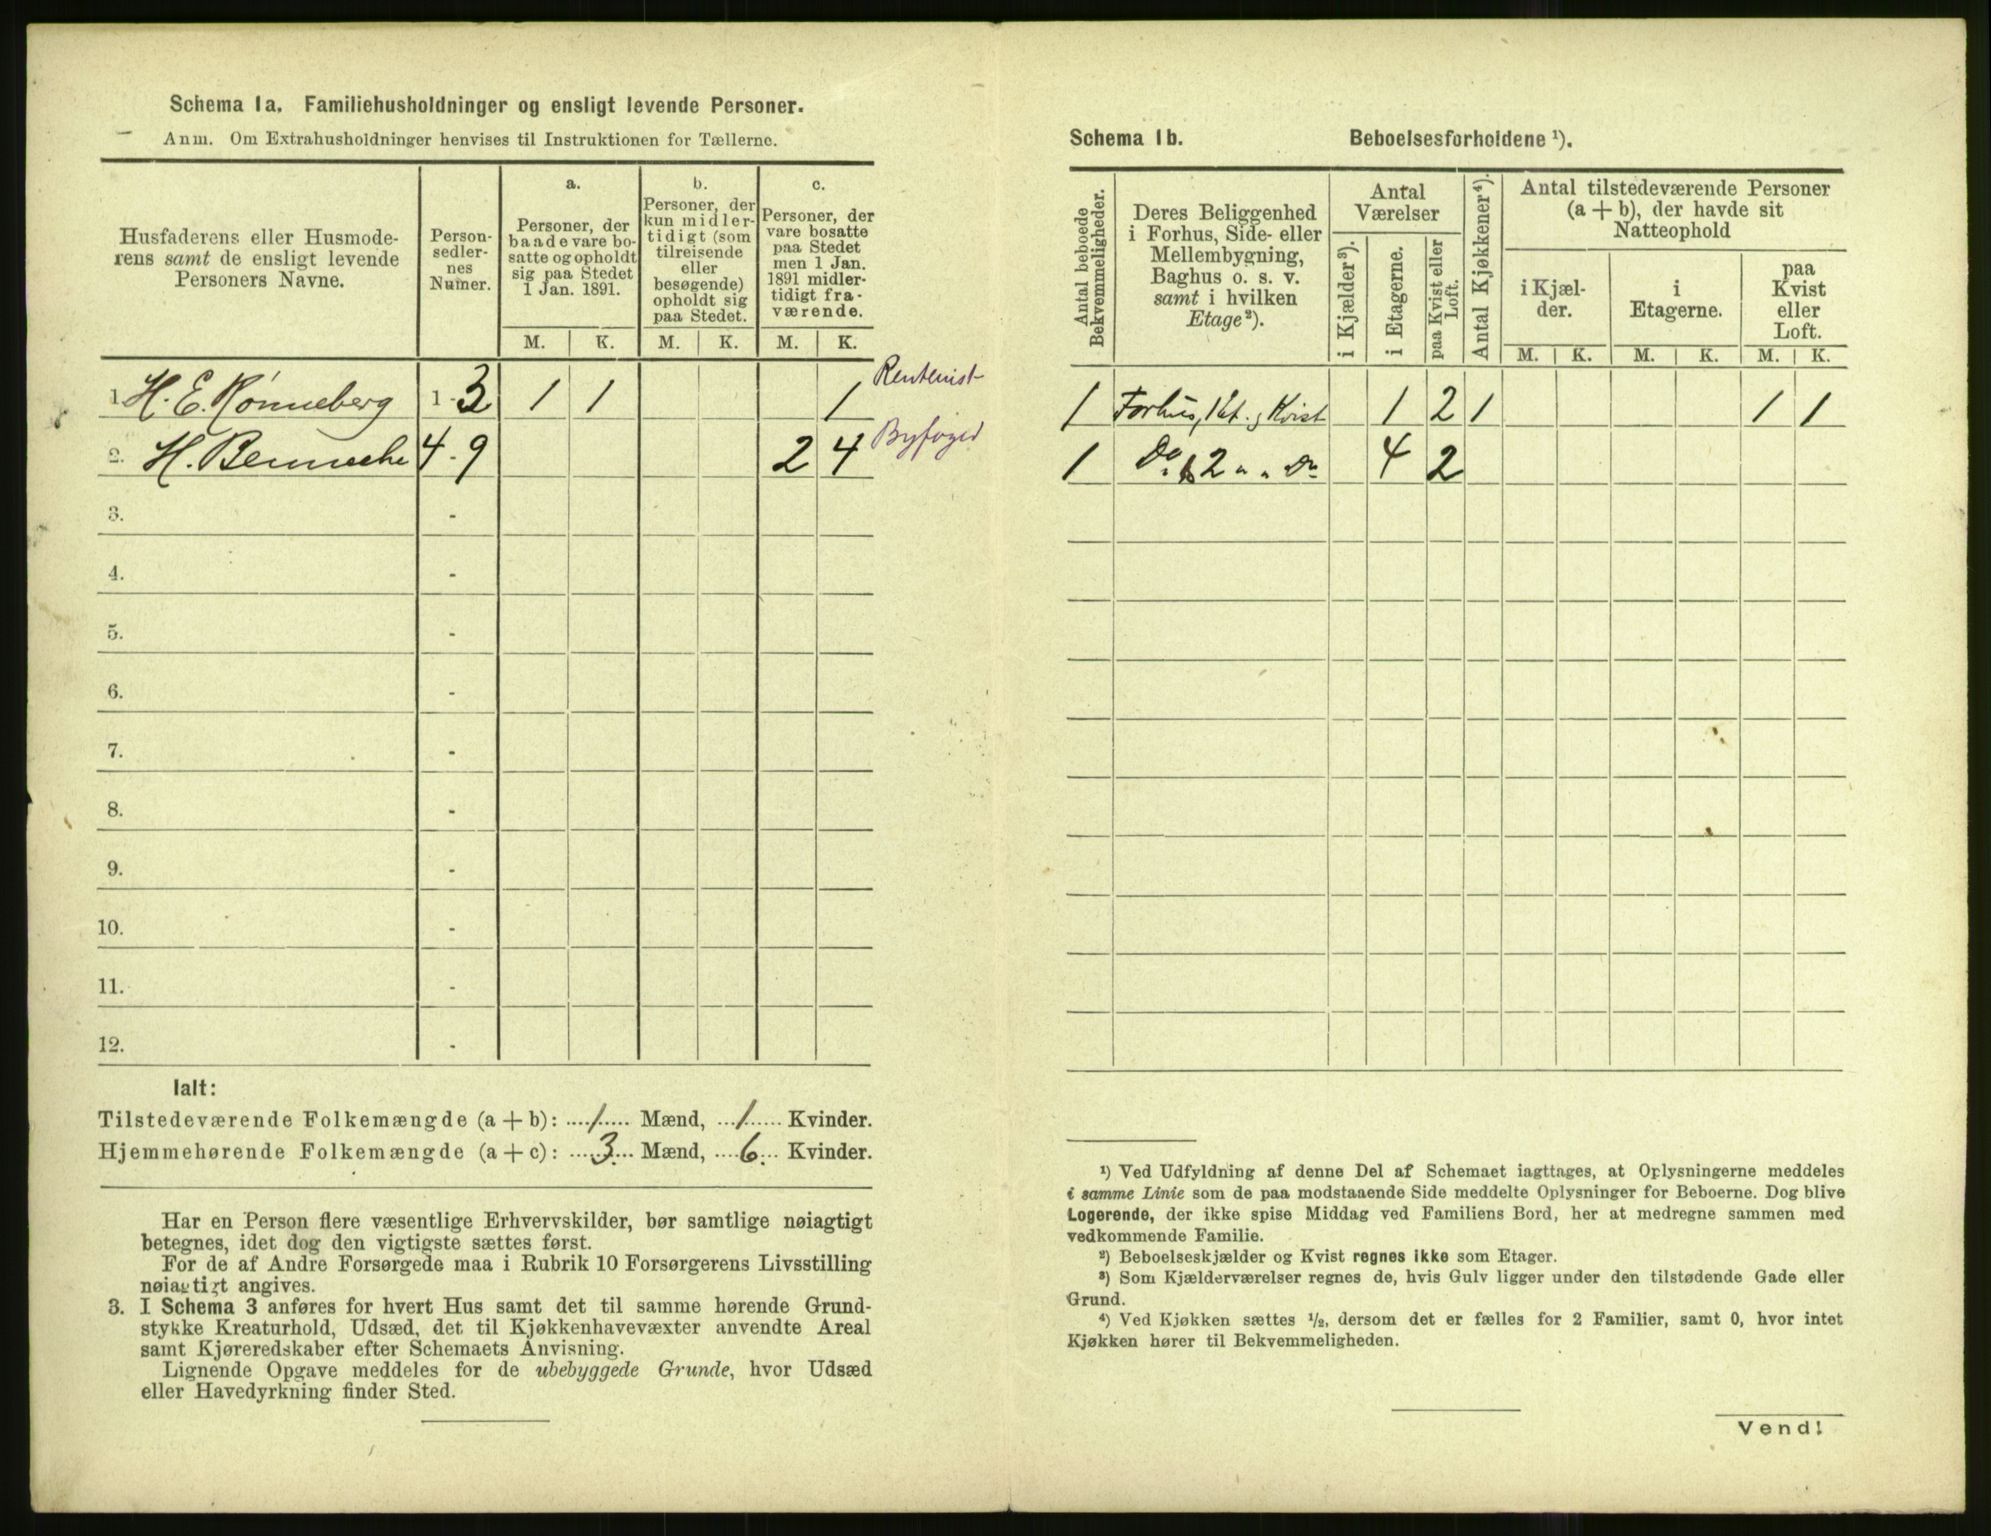 Schema 1a. Familiehusholdninger og ensligt levende Personer.
Anm. Om Extrahusholdninger henvises til Instruktionen for Tællerne.
Husfaderens eller Husmode-
rens samt de ensligt levende
Personers Navne.
Person-
sedler-
nes
Numer.
a.
Personer, der
baade vare bo-
satte og opholdt
sig paa Stedet
1 Jan. 1891.
b.
Personer, der
kun midler-
tidigt (som
tilreisende
eller
besøgende)
opholdt sig
paa Stedet.
c.
Personer, der
vare bosatte
paa Stedet
men 1 Jan.
1891 midler-
tidigt fra-
værende.
M. K. M. K. M. K.
1. H. E. Rønneberg 1 - 3 1 1 1 Rentenist
2. H. Benneche 4 - 9 2 4 Byfoged
3. -
4. -
5. -
6. -
7. -
8. -
9. -
10. -
11. -
12. -
Ialt:
Tilstedeværende Folkemængde (a + b): 1 Mænd, 1 Kvinder.
Hjemmehørende Folkemængde (a + c): 3 Mænd, 6 Kvinder.
Har en Person flere væsentlige Erhvervskilder, bør samtlige nøiagtigt
betegnes, idet dog den vigtigste sættes først.
For de af Andre Forsørgede maa i Rubrik 10 Forsørgerens Livsstilling
nøiagtigt angives.
3. I Schema 3 anføres for hvert Hus samt det til samme hørende Grund-
stykke Kreaturhold, Udsæd, det til Kjøkkenhavevæxter anvendte Areal
samt Kjøreredskaber efter Schemaets Anvisning.
Lignende Opgave meddeles for de ubebyggede Grunde, hvor Udsæd
eller Havedyrkning finder Sted.
Schema 1b. Beboelsesforholdene ¹).
Antal beboede
Bekvemmeligheder.
Deres Beliggenhed
i Forhus, Side- eller
Mellembygning,
Baghus o. s. v.
samt i hvilken
Etage²).
Antal
Værelser
i Kjælder³).
i Etagerne.
paa Kvist eller
Loft.
Antal Kjøkkener⁴).
Antal tilstedeværende Personer
(a + b), der havde sit
Natteophold
i Kjæl-
der.
i
Etagerne.
paa
Kvist
eller
Loft.
M. K. M. K. M. K.
1 Forhus, 1 Et. og Kvist 1 2 1 1 1
1 Do. 2 " " Do 4 2
¹) Ved Udfyldning af denne Del af Schemaet iagttages, at Oplysningerne meddeles
i samme Linie som de paa modstaaende Side meddelte Oplysninger for Beboerne. Dog blive
Logerende, der ikke spise Middag ved Familiens Bord, her at medregne sammen med
vedkommende Familie.
²) Beboelseskjælder og Kvist regnes ikke som Etager.
³) Som Kjælderværelser regnes de, hvis Gulv ligger under den tilstødende Gade eller
Grund.
⁴) Ved Kjøkken sættes ½, dersom det er fælles for 2 Familier, samt 0, hvor intet
Kjøkken hører til Bekvemmeligheden.
Vend!